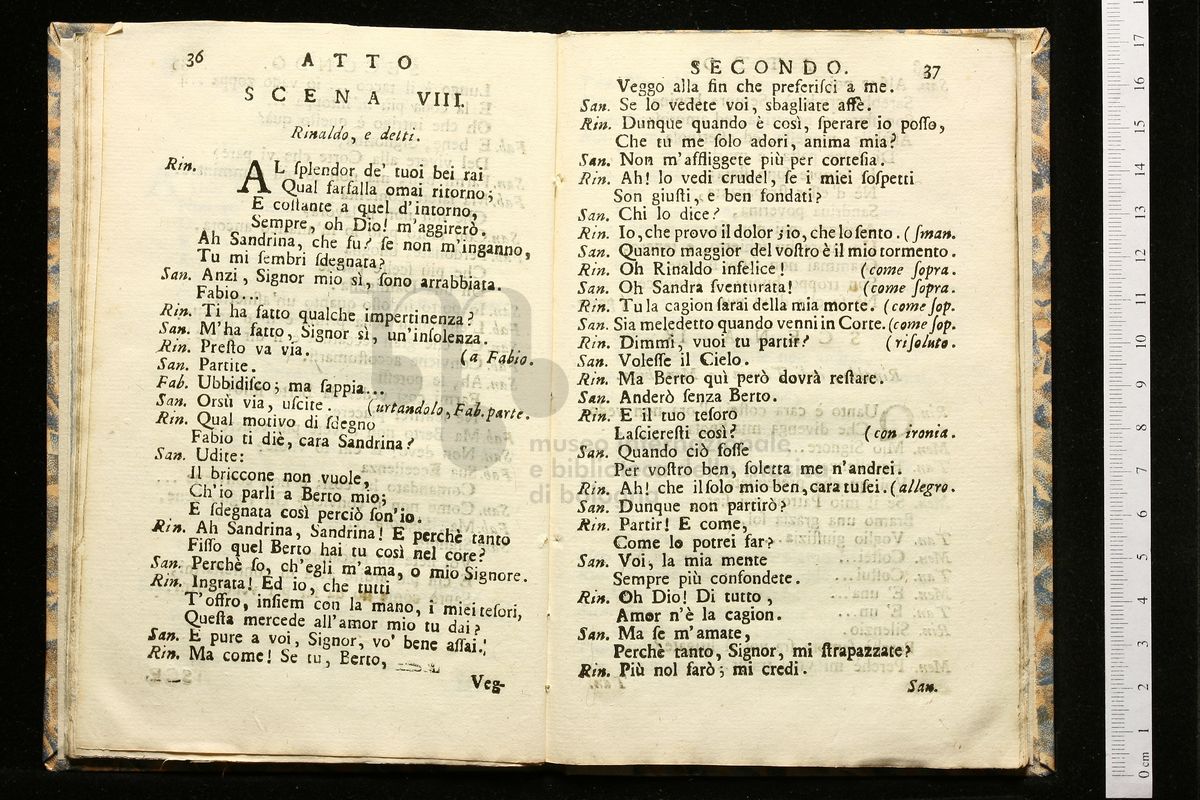 36 ATTO
SCENA VIII.
Rinaldo, e detti.
Rin. AL ſplendor de' tuoi bei rai
Qual farfalla omai ritorno;
E coſtante a quel d'intorno,
Sempre, oh Dio! m'aggirerò.
Ah Sandrina, che fu? ſe non m'inganno,
Tu mi ſembri ſdegnata?
San. Anzi, Signor mio sì, ſono arrabbiata.
Fabio...
Rin. Ti ha fatto qualche impertinenza?
San. M'ha fatto, Signor sì, un'inſolenza.
Rin. Preſto va via. (a Fabio.
San. Partite.
Fab. Ubbidiſco; ma ſappia...
San. Orsù via, uſcite. (urtandolo, Fab. parte.
Rin. Qual motivo di ſdegno
Fabio ti diè, cara Sandrina?
San. Udite:
Il briccone non vuole,
Ch'io parli a Berto mio;
E ſdegnata così perciò ſon'io.
Rin. Ah Sandrina, Sandrina! E perchè tanto
Fiſſo quel Berto hai tu così nel core?
San. Perchè ſo, ch'egli m'ama, o mio Signore.
Rin. Ingrata! Ed io, che tutti
T'offro, inſiem con la mano, i miei teſori,
Queſta mercede all'amor mio tu dai?
San. E pure a voi, Signor, vo' bene aſſai.
Rin. Ma come! Se tu, Berto,
Veg-
SECONDO. 37
Veggo alla fin che preferiſci a me.
San. Se lo vedete voi, sbagliate affè.
Rin. Dunque quando è così, ſperare io poſſo,
Che tu me ſolo adori, anima mia?
San. Non m'affliggete più per corteſia.
Rin. Ah! lo vedi crudel, ſe i miei ſoſpetti
Son giuſti, e ben fondati?
San. Chi lo dice?
Rin. Io, che provo il dolor; io, che lo ſento. (ſman.
San. Quanto maggior del voſtro è il mio tormento.
Rin. Oh Rinaldo infelice! (come ſopra.
San. Oh Sandra ſventurata! (come ſopra.
Rin. Tu la cagion ſarai della mia morte. (come ſop.
San. Sia meledetto quando venni in Corte. (come ſop.
Rin. Dimmi, vuoi tu partir? (riſoluto.
San. Voleſſe il Cielo.
Rin. Ma Berto quì però dovrà reſtare.
San. Anderò ſenza Berto.
Rin. E il tuo teſoro
Laſciereſti così? (con ironia.
San. Quando ciò foſſe
Per voſtro ben, ſoletta me n'andrei.
Rin. Ah! che il ſolo mio ben, cara tu ſei. (allegro.
San. Dunque non partirò?
Rin. Partir! E come,
Come lo potrei far?
San. Voi, la mia mente
Sempre più confondete.
Rin. Oh Dio! Di tutto,
Amor n'è la cagion.
San. Ma ſe m'amate,
Perchè tanto, Signor, mi ſtrapazzate?
Rin. Più nol farò; mi credi.
San.
museo internazionale
e biblioteca
di bologna